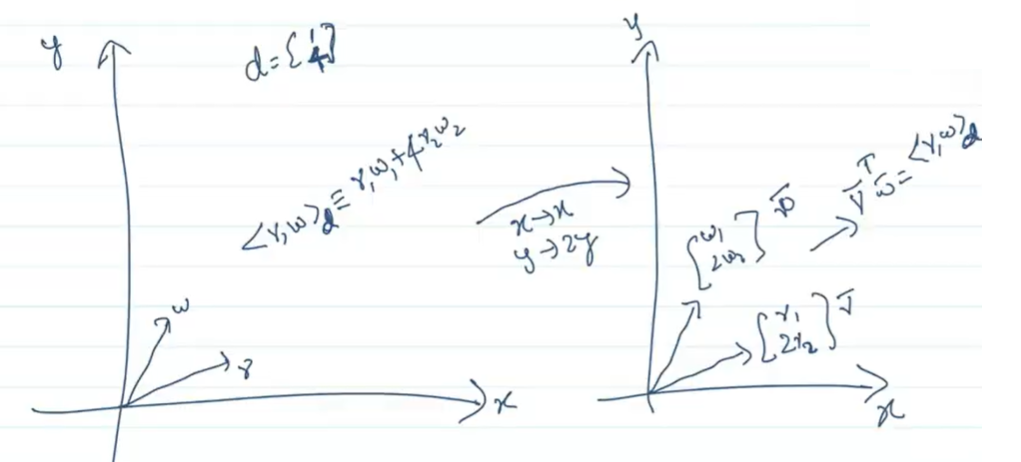 y
d = {1, 4}
<v, w>_d ≡ v₁w₁ + 4v₂w₂
w
v
x
x → x
y → 2y
y
[w₁ 2w₂] w̄
v̄ᵀ w̄ = <v, w>_d
[v₁ 2v₂] v̄
x